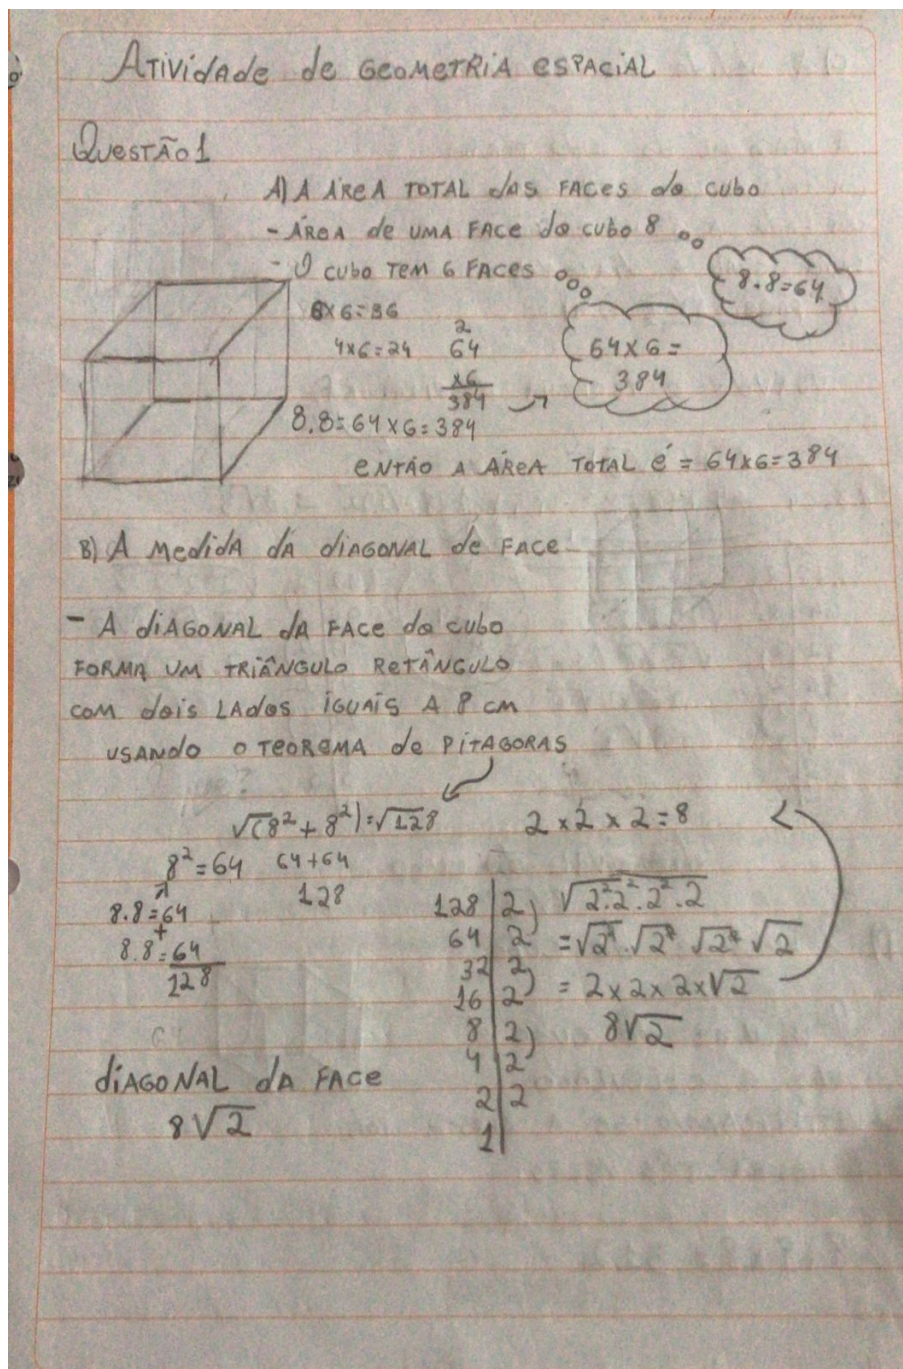 ATIVIDADE DE GEOMETRIA ESPACIAL
QUESTÃO 1
A) A ÁREA TOTAL DAS FACES DO CUBO
- ÁREA DE UMA FACE DO CUBO 8
8.8=64
- O CUBO TEM 6 FACES
6×6=36
4×6=24
2
64
×6
384
64×6=
384
8.8=64×6=384
ENTÃO A ÁREA TOTAL É = 64×6=384
B) A MEDIDA DA DIAGONAL DE FACE
- A DIAGONAL DA FACE DO CUBO
FORMA UM TRIÂNGULO RETÂNGULO
COM DOIS LADOS IGUAIS A 8 CM
USANDO O TEOREMA DE PITAGORAS
√(8²+8²)=√128
2×2×2=8
8²=64 64+64
128
8.8=64
+
8.8=64
128
128|2) √2².2².2².2
64|2 =√2².√2² √2² √2
32|2
16|2) = 2×2×2×√2
8|2) 8√2
4|2
2|2
1|
DIAGONAL DA FACE
8√2